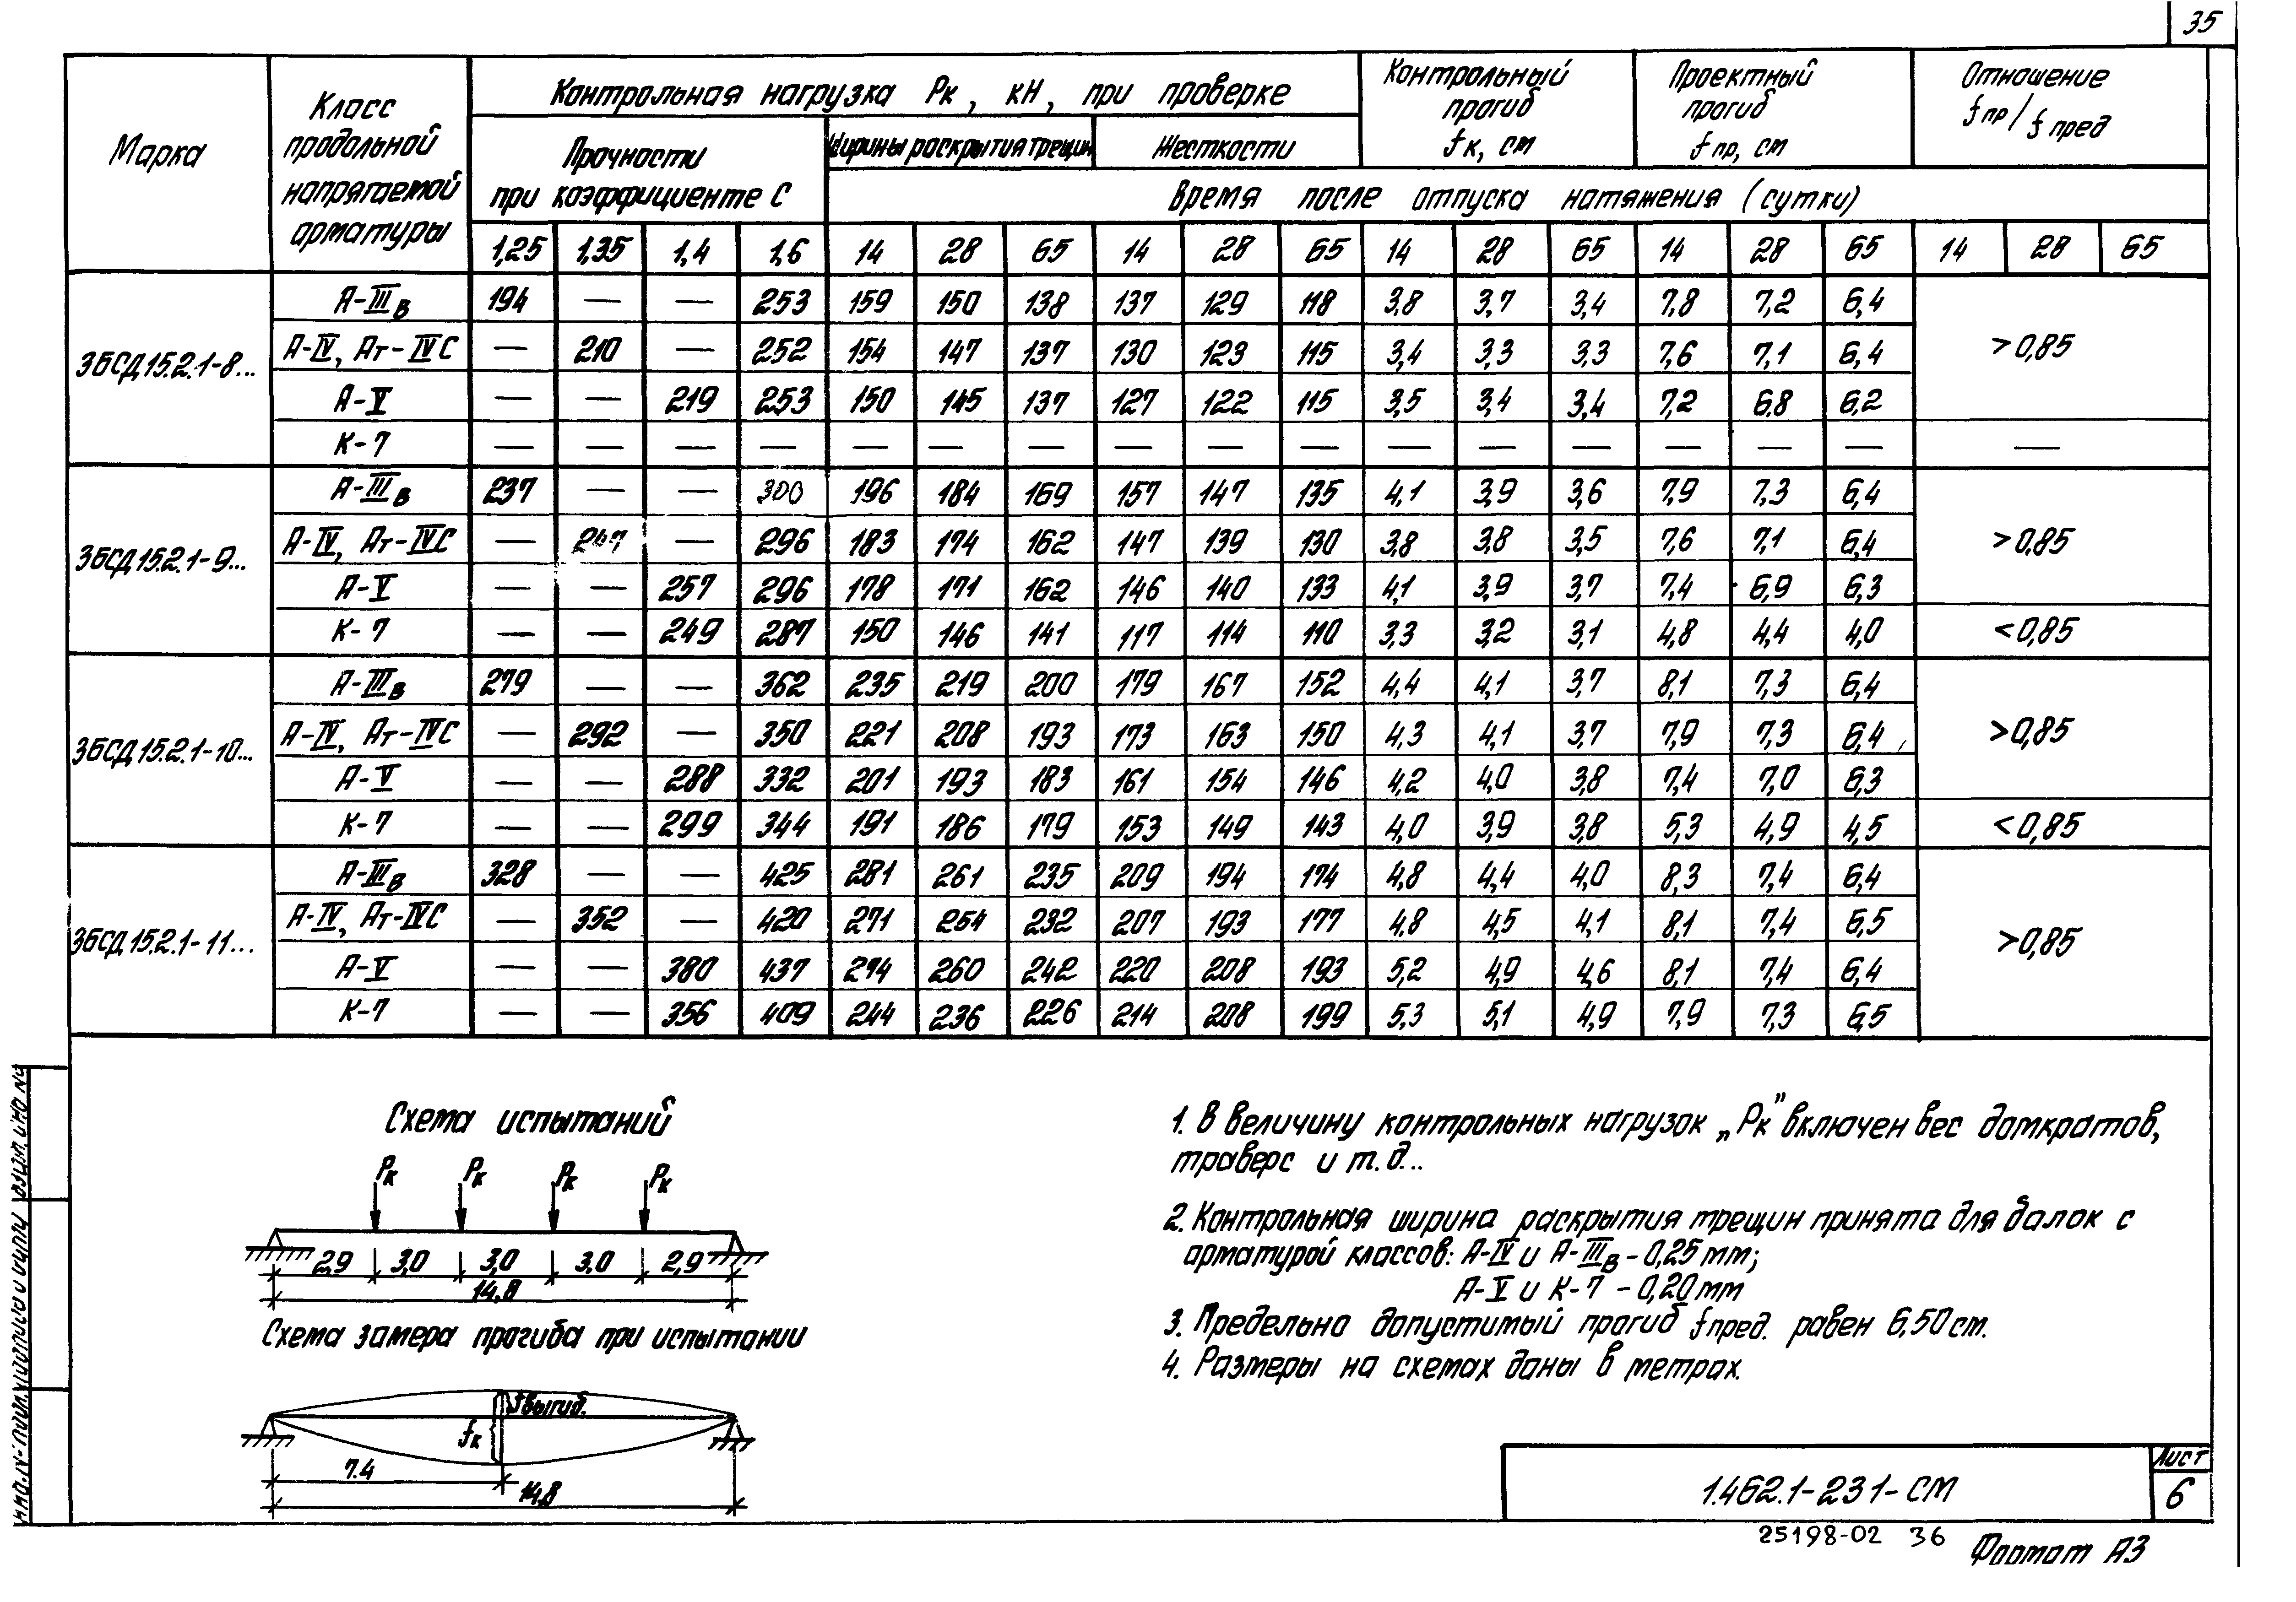 35
Марка
Класс продольной напрягаемой арматуры
Контрольная нагрузка Рк, кН, при проверке
Контрольный прогиб fк, см
Проектный прогиб fпр, см
Отношение fпр/fпред
Прочности при коэффициенте С
Ширины раскрытия трещин
Жесткости
Время после отпуска натяжения (сутки)
1,25 1,35 1,4 1,6 14 28 65 14 28 65 14 28 65 14 28 65 14 28 65
3БСД15.2.1-8...
А-IIIв 194 — — 253 159 150 138 137 129 118 3,8 3,7 3,4 7,8 7,2 6,4
А-IV, Ат-IVС — 210 — 252 154 147 137 130 123 115 3,4 3,3 3,3 7,6 7,1 6,4 >0,85
А-V — — 219 253 150 145 137 127 122 115 3,5 3,4 3,4 7,2 6,8 6,2
К-7 — — — — — — — — — — — — — — — — —
3БСД15.2.1-9...
А-IIIв 237 — — 300 196 184 169 157 147 135 4,1 3,9 3,6 7,9 7,3 6,4
А-IV, Ат-IVС — — 296 183 174 162 147 139 130 3,8 3,8 3,5 7,6 7,1 6,4 >0,85
А-V — — 257 296 178 171 162 146 140 133 4,1 3,9 3,7 7,4 6,9 6,3
К-7 — — 249 287 150 146 141 117 114 110 3,3 3,2 3,1 4,8 4,4 4,0 <0,85
3БСД15.2.1-10...
А-IIIв 279 — — 362 235 219 200 179 167 152 4,4 4,1 3,7 8,1 7,3 6,4
А-IV, Ат-IVС — 292 — 350 221 208 193 173 163 150 4,3 4,1 3,7 7,9 7,3 6,4 >0,85
А-V — — 288 332 201 193 183 161 154 146 4,2 4,0 3,8 7,4 7,0 6,3
К-7 — — 299 344 191 186 179 153 149 143 4,0 3,9 3,8 5,3 4,9 4,5 <0,85
3БСД15.2.1-11...
А-IIIв 328 — — 425 281 261 235 209 194 174 4,8 4,4 4,0 8,3 7,4 6,4
А-IV, Ат-IVС — 352 — 420 271 254 232 207 193 177 4,8 4,5 4,1 8,1 7,4 6,5 >0,85
А-V — — 380 437 274 260 242 220 208 193 5,2 4,9 4,6 8,1 7,4 6,4
К-7 — — 356 409 244 236 226 214 208 199 5,3 5,1 4,9 7,9 7,3 6,5
Схема испытаний
Рк Рк Рк Рк
2,9 3,0 3,0 3,0 2,9
14,8
Схема замера прогиба при испытании
fвыгиб.
fк
7.4
14,8
1. В величину контрольных нагрузок „Рк” включен вес домкратов,
траверс и т.д...
2. Контрольная ширина раскрытия трещин принята для балок с
арматурой классов: А-IV и А-IIIв - 0,25 мм;
А-V и К-7 - 0,20 мм
3. Предельно допустимый прогиб fпред. равен 6,50 см.
4. Размеры на схемах даны в метрах.
1.462.1-23 1-СМ
Лист
6
25198-02 36
Формат А3